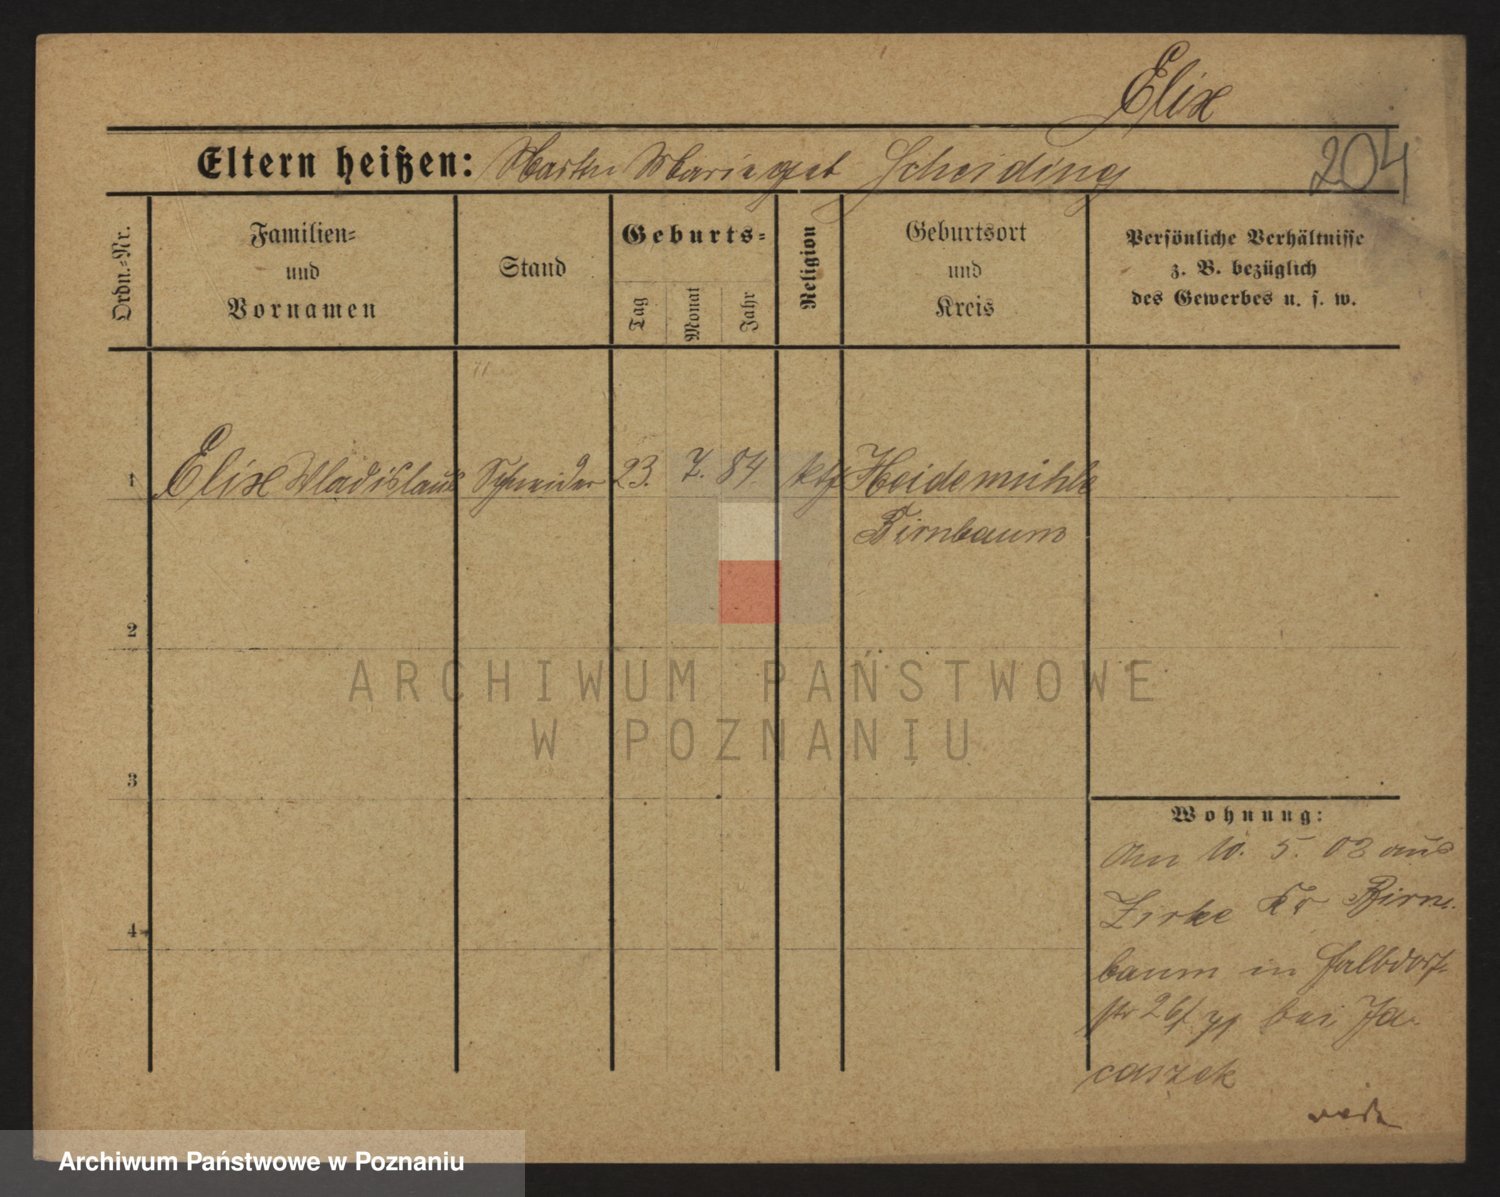 Elix
Eltern heißen: Martin Marie geb Scheiding
204
Ordn.-Nr.
Familien-
und
Vornamen
Stand
Geburts-
Tag
Monat
Jahr
Religion
Geburtsort
und
Kreis
Persönliche Verhältnisse
z. B. bezüglich
des Gewerbes u. s. w.
1 Elix Wladislaus Schneider 23. 7. 84 ktf Heidemühle
Birnbaum
2
3
4
ARCHIWUM PAŃSTWOWE
W POZNANIU
Wohnung:
Am 10. 5. 08 aus
Zirke Kr Birn-
baum in Halbdorf-
str 26 bei Ja-
caszek
Archiwum Państwowe w Poznaniu